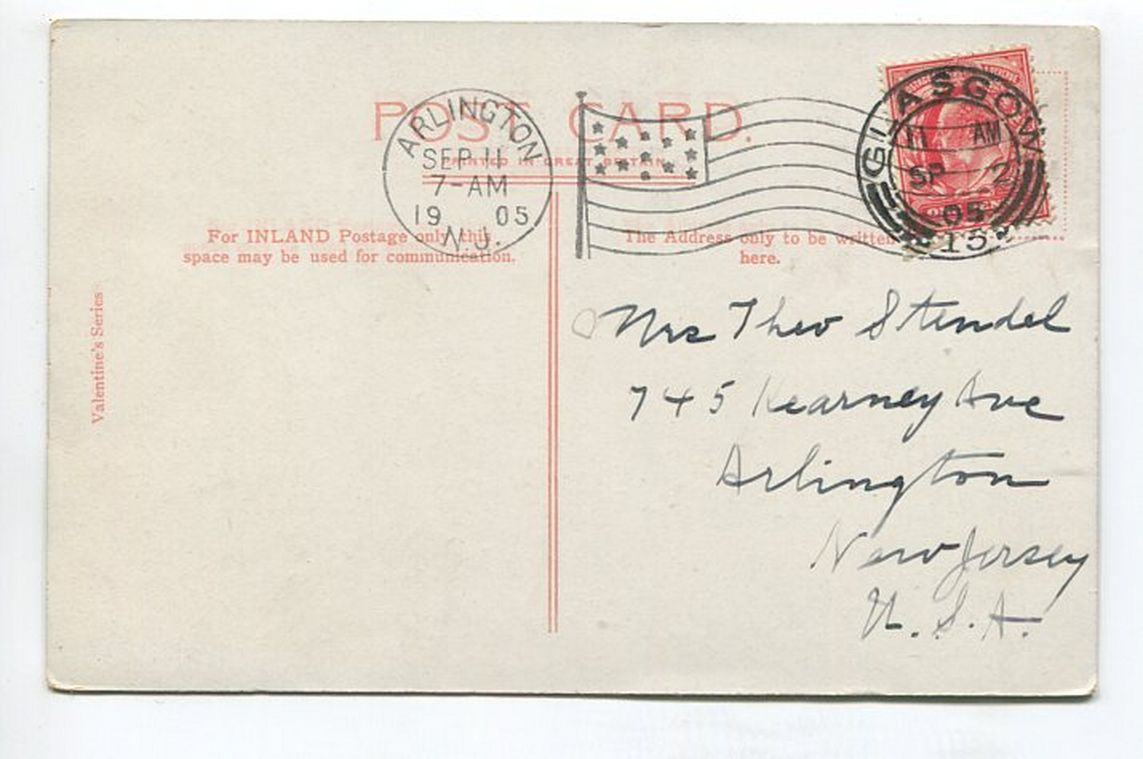 POST CARD.
PRINTED IN GREAT BRITAIN
ARLINGTON
SEP 11
7-AM
19 05
N.J.
GLASGOW
11 AM
SP 2
05
15
For INLAND Postage only this
space may be used for communication.
The Address only to be written
here.
Valentine's Series
Mrs Theo Stendel
745 Kearney Ave
Arlington
New Jersey
U.S.A.